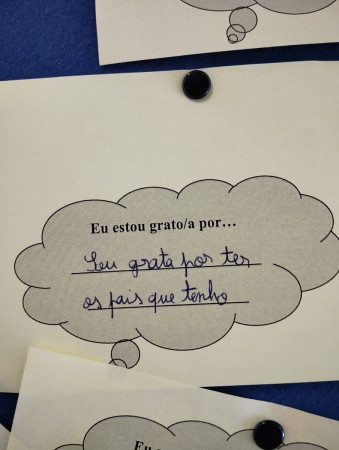 Eu estou grato/a por…
Sou grata por ter
os pais que tenho
Eu